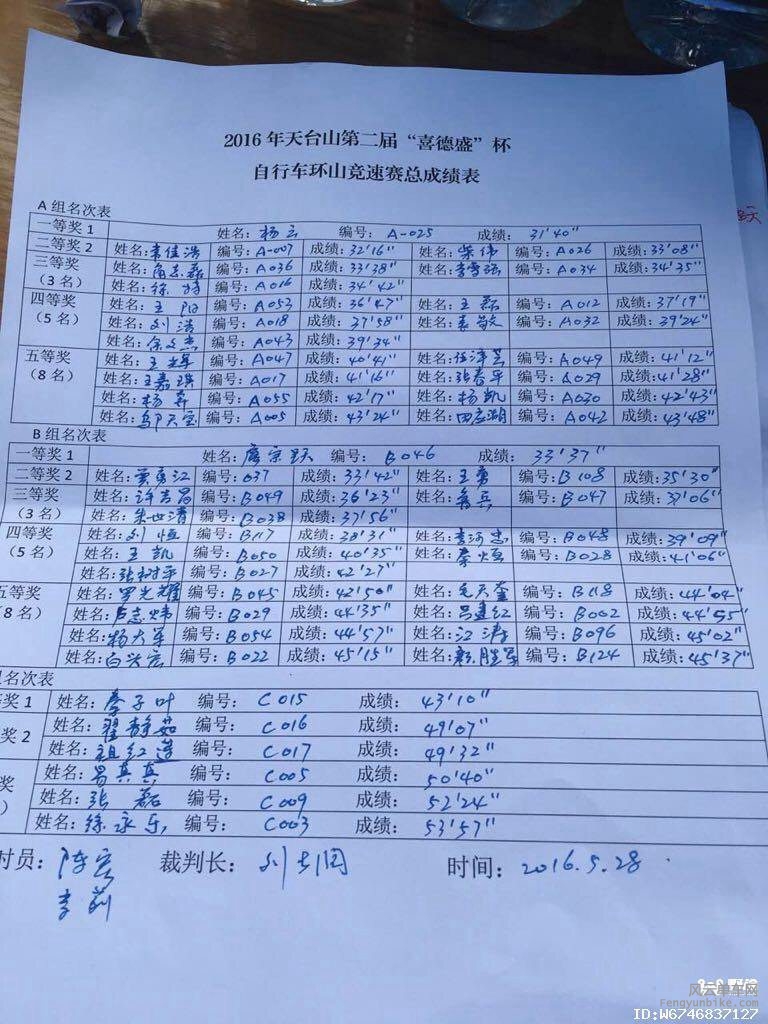 2016年天台山第二届“喜德盛”杯
自行车环山竞速赛总成绩表
A组名次表
一等奖1 姓名:杨云 编号:A-025 成绩:31'40"
二等奖2 姓名:李佳浩 编号:A-007 成绩:32'16" 姓名:柴伟 编号:A026 成绩:33'08"
三等奖 姓名: 编号:A036 成绩:33'38" 姓名: 编号:A034 成绩:34'35"
(3名) 姓名:徐 编号:A016 成绩:34'42"
四等奖 姓名:王阳 编号:A053 成绩:36'47" 姓名:王磊 编号:A012 成绩:37'19"
(5名) 姓名:刘涛 编号:A018 成绩:37'58" 姓名: 编号:A032 成绩:39'24"
姓名:余文杰 编号:A043 成绩:39'34"
五等奖 姓名:王 编号:A047 成绩:40'41" 姓名:任泽 编号:A049 成绩:41'12"
(8名) 姓名:王嘉琪 编号:A017 成绩:41'16" 姓名:张春平 编号:A029 成绩:41'28"
姓名:杨 编号:A055 成绩:42'17" 姓名:杨凯 编号:A030 成绩:42'43"
姓名:邬天宝 编号:A005 成绩:43'24" 姓名:田应湖 编号:A042 成绩:43'48"
B组名次表
一等奖1 姓名:唐宗跃 编号:B046 成绩:33'37"
二等奖2 姓名: 江 编号:037 成绩:33'42" 姓名:王勇 编号:B108 成绩:35'30"
三等奖 姓名:许吉昌 编号:B049 成绩:36'23" 姓名: 兵 编号:B047 成绩:37'06"
(3名) 姓名:朱世清 编号:B038 成绩:37'56"
四等奖 姓名:刘恒 编号:B117 成绩:38'31" 姓名:李河忠 编号:B048 成绩:39'09"
(5名) 姓名:王凯 编号:B050 成绩:40'35" 姓名:秦 编号:B028 成绩:41'06"
姓名:张树平 编号:B027 成绩:42'27"
五等奖 姓名:罗光耀 编号:B045 成绩:42'50" 姓名:毛天奎 编号:B118 成绩:44'04"
(8名) 姓名:卢志炜 编号:B029 成绩:44'35" 姓名:吕建红 编号:B002 成绩:44'55"
姓名:杨大军 编号:B054 成绩:44'57" 姓名:江涛 编号:B096 成绩:45'02"
姓名:白兴宏 编号:B022 成绩:45'15" 姓名:颜胜军 编号:B124 成绩:45'37"
组名次表
等奖1 姓名:秦子叶 编号: C015 成绩: 43'10"
奖2 姓名:翟静茹 编号: C016 成绩: 49'07"
姓名:祖红莲 编号: C017 成绩: 49'32"
奖 姓名:易真真 编号: C005 成绩: 50'40"
) 姓名:张磊 编号: C009 成绩: 52'24"
姓名:徐永乐 编号: C003 成绩: 53'57"
时员:陈宏 裁判长:刘 时间:2016.5.28
李莉
风云单车网
Fengyunbike.com
ID:W6746837127